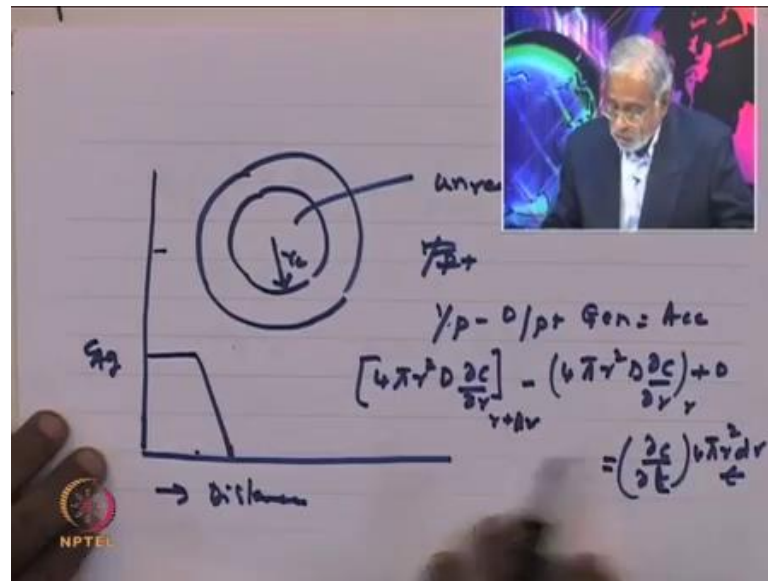 unrea
I/p - O/p + Gen = Acc
[4πr² D ∂c/∂r]r+Δr - (4πr² D ∂c/∂r)r + 0
= (∂c/∂t) 4πr² dr
CAg
rc
→ Distance
NPTEL